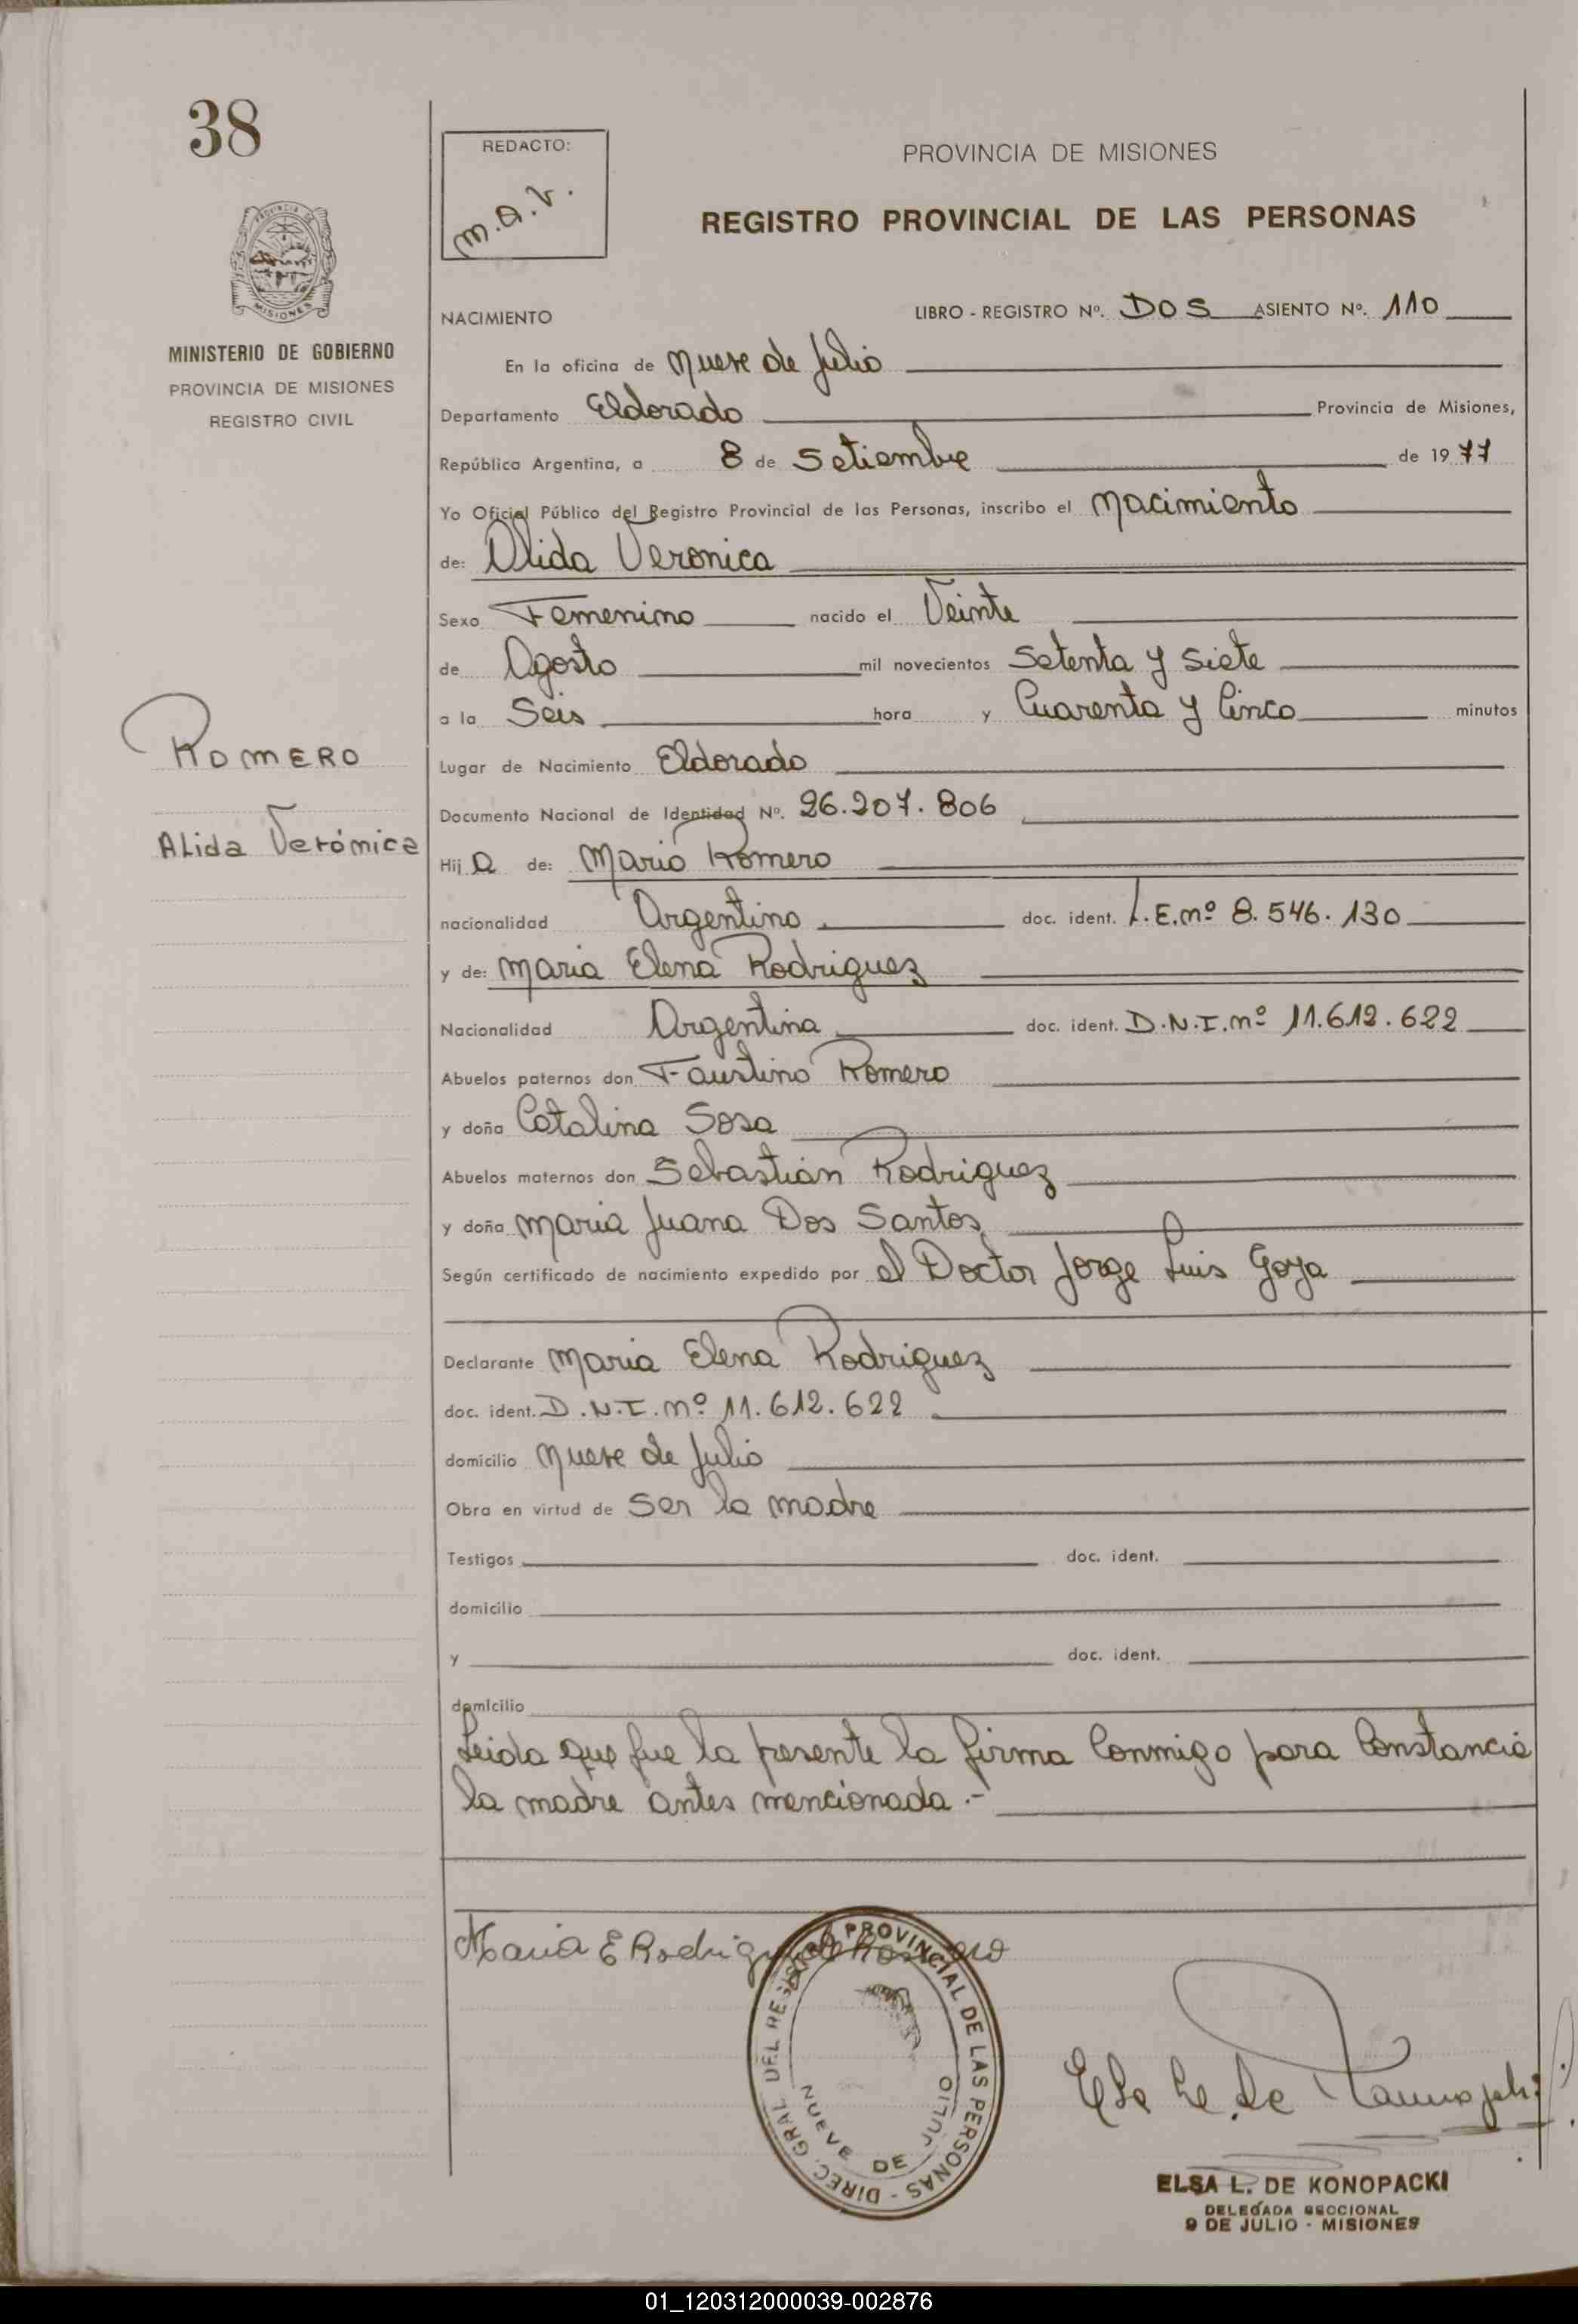 38
REDACTO:
M.A.V.
PROVINCIA DE MISIONES
REGISTRO PROVINCIAL DE LAS PERSONAS
PROVINCIA DE
MISIONES
MINISTERIO DE GOBIERNO
PROVINCIA DE MISIONES
REGISTRO CIVIL
NACIMIENTO LIBRO - REGISTRO Nº. DOS ASIENTO Nº. 110
En la oficina de Nueve de Julio
Departamento Eldorado Provincia de Misiones,
República Argentina, a 8 de Setiembre de 1977
Yo Oficial Público del Registro Provincial de las Personas, inscribo el Nacimiento
de: Alida Veronica
Sexo Femenino nacido el Veinte
de Agosto mil novecientos Setenta y Siete
a la Seis hora y Cuarenta y Cinco minutos
ROMERO
Alida Verónica
Lugar de Nacimiento Eldorado
Documento Nacional de Identidad Nº. 26.207.806
Hija de: Mario Romero
nacionalidad Argentino doc. ident. L.E.nº 8.546.130
y de: Maria Elena Rodriguez
Nacionalidad Argentina doc. ident. D.N.I.nº 11.612.622
Abuelos paternos don Faustino Romero
y doña Catalina Sosa
Abuelos maternos don Sebastián Rodriguez
y doña Maria Juana Dos Santos
Según certificado de nacimiento expedido por el Doctor Jorge Luis Goya
Declarante Maria Elena Rodriguez
doc. ident. D.N.I.nº 11.612.622
domicilio Nueve de Julio
Obra en virtud de Ser la madre
Testigos doc. ident.
domicilio
y doc. ident.
domicilio
Leida que fue la presente la firma Conmigo para Constancia
la madre antes mencionada.-
Maria E Rodriguez de Romero
DIREC. GRAL. DEL REGISTRO PROVINCIAL DE LAS PERSONAS -
NUEVE DE JULIO
Elsa L. de Konopacki
ELSA L. DE KONOPACKI
DELEGADA SECCIONAL
9 DE JULIO - MISIONES
01_120312000039-002876